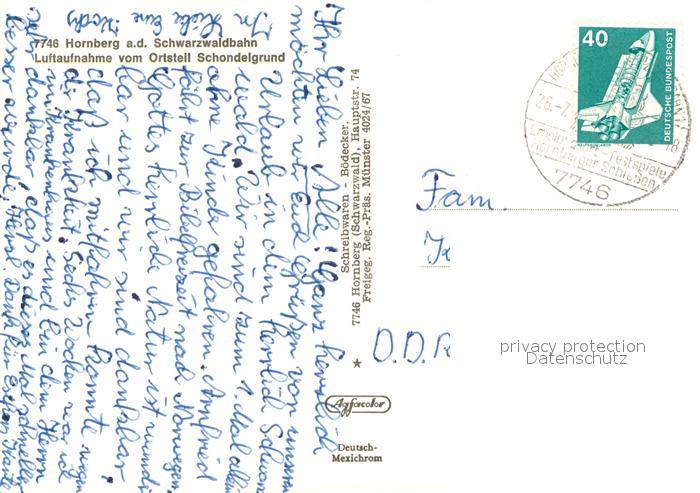 7746 Hornberg a.d. Schwarzwaldbahn
Luftaufnahme vom Ortsteil Schondelgrund
Ihr Lieben Alle! Ganz herzlich
möchten wir Euch grüßen von unserem
Urlaub in dem herrlich Schwarz
wald. Wir sind zum 1. Mal allein
ohne Kinder gefahren. Manfried
fährt zur Bibelfreizeit nach Norwegen
Gottes herrliche Natur ist wunder
bar und wir sind dankbar
daß ich mitfahren konnte wegen
der Krankheit. Sechs Wochen war ich
im Krankenhaus und bin dem Herrn
sehr dankbar daß es dieses Mal schneller
besser wurde. Herzl. Dank für
In Liebe Eure
Schreibwaren - Bödecker,
7746 Hornberg (Schwarzwald), Hauptstr. 74
Freigeg. Reg.-Präs. Münster 4024/67
Agfacolor
Deutsch-
Mexichrom
40
DEUTSCHE BUNDESPOST
26.-7.
Festspiele
Hornberger Schießen
7746
Fam.
D.D.R
privacy protection
Datenschutz